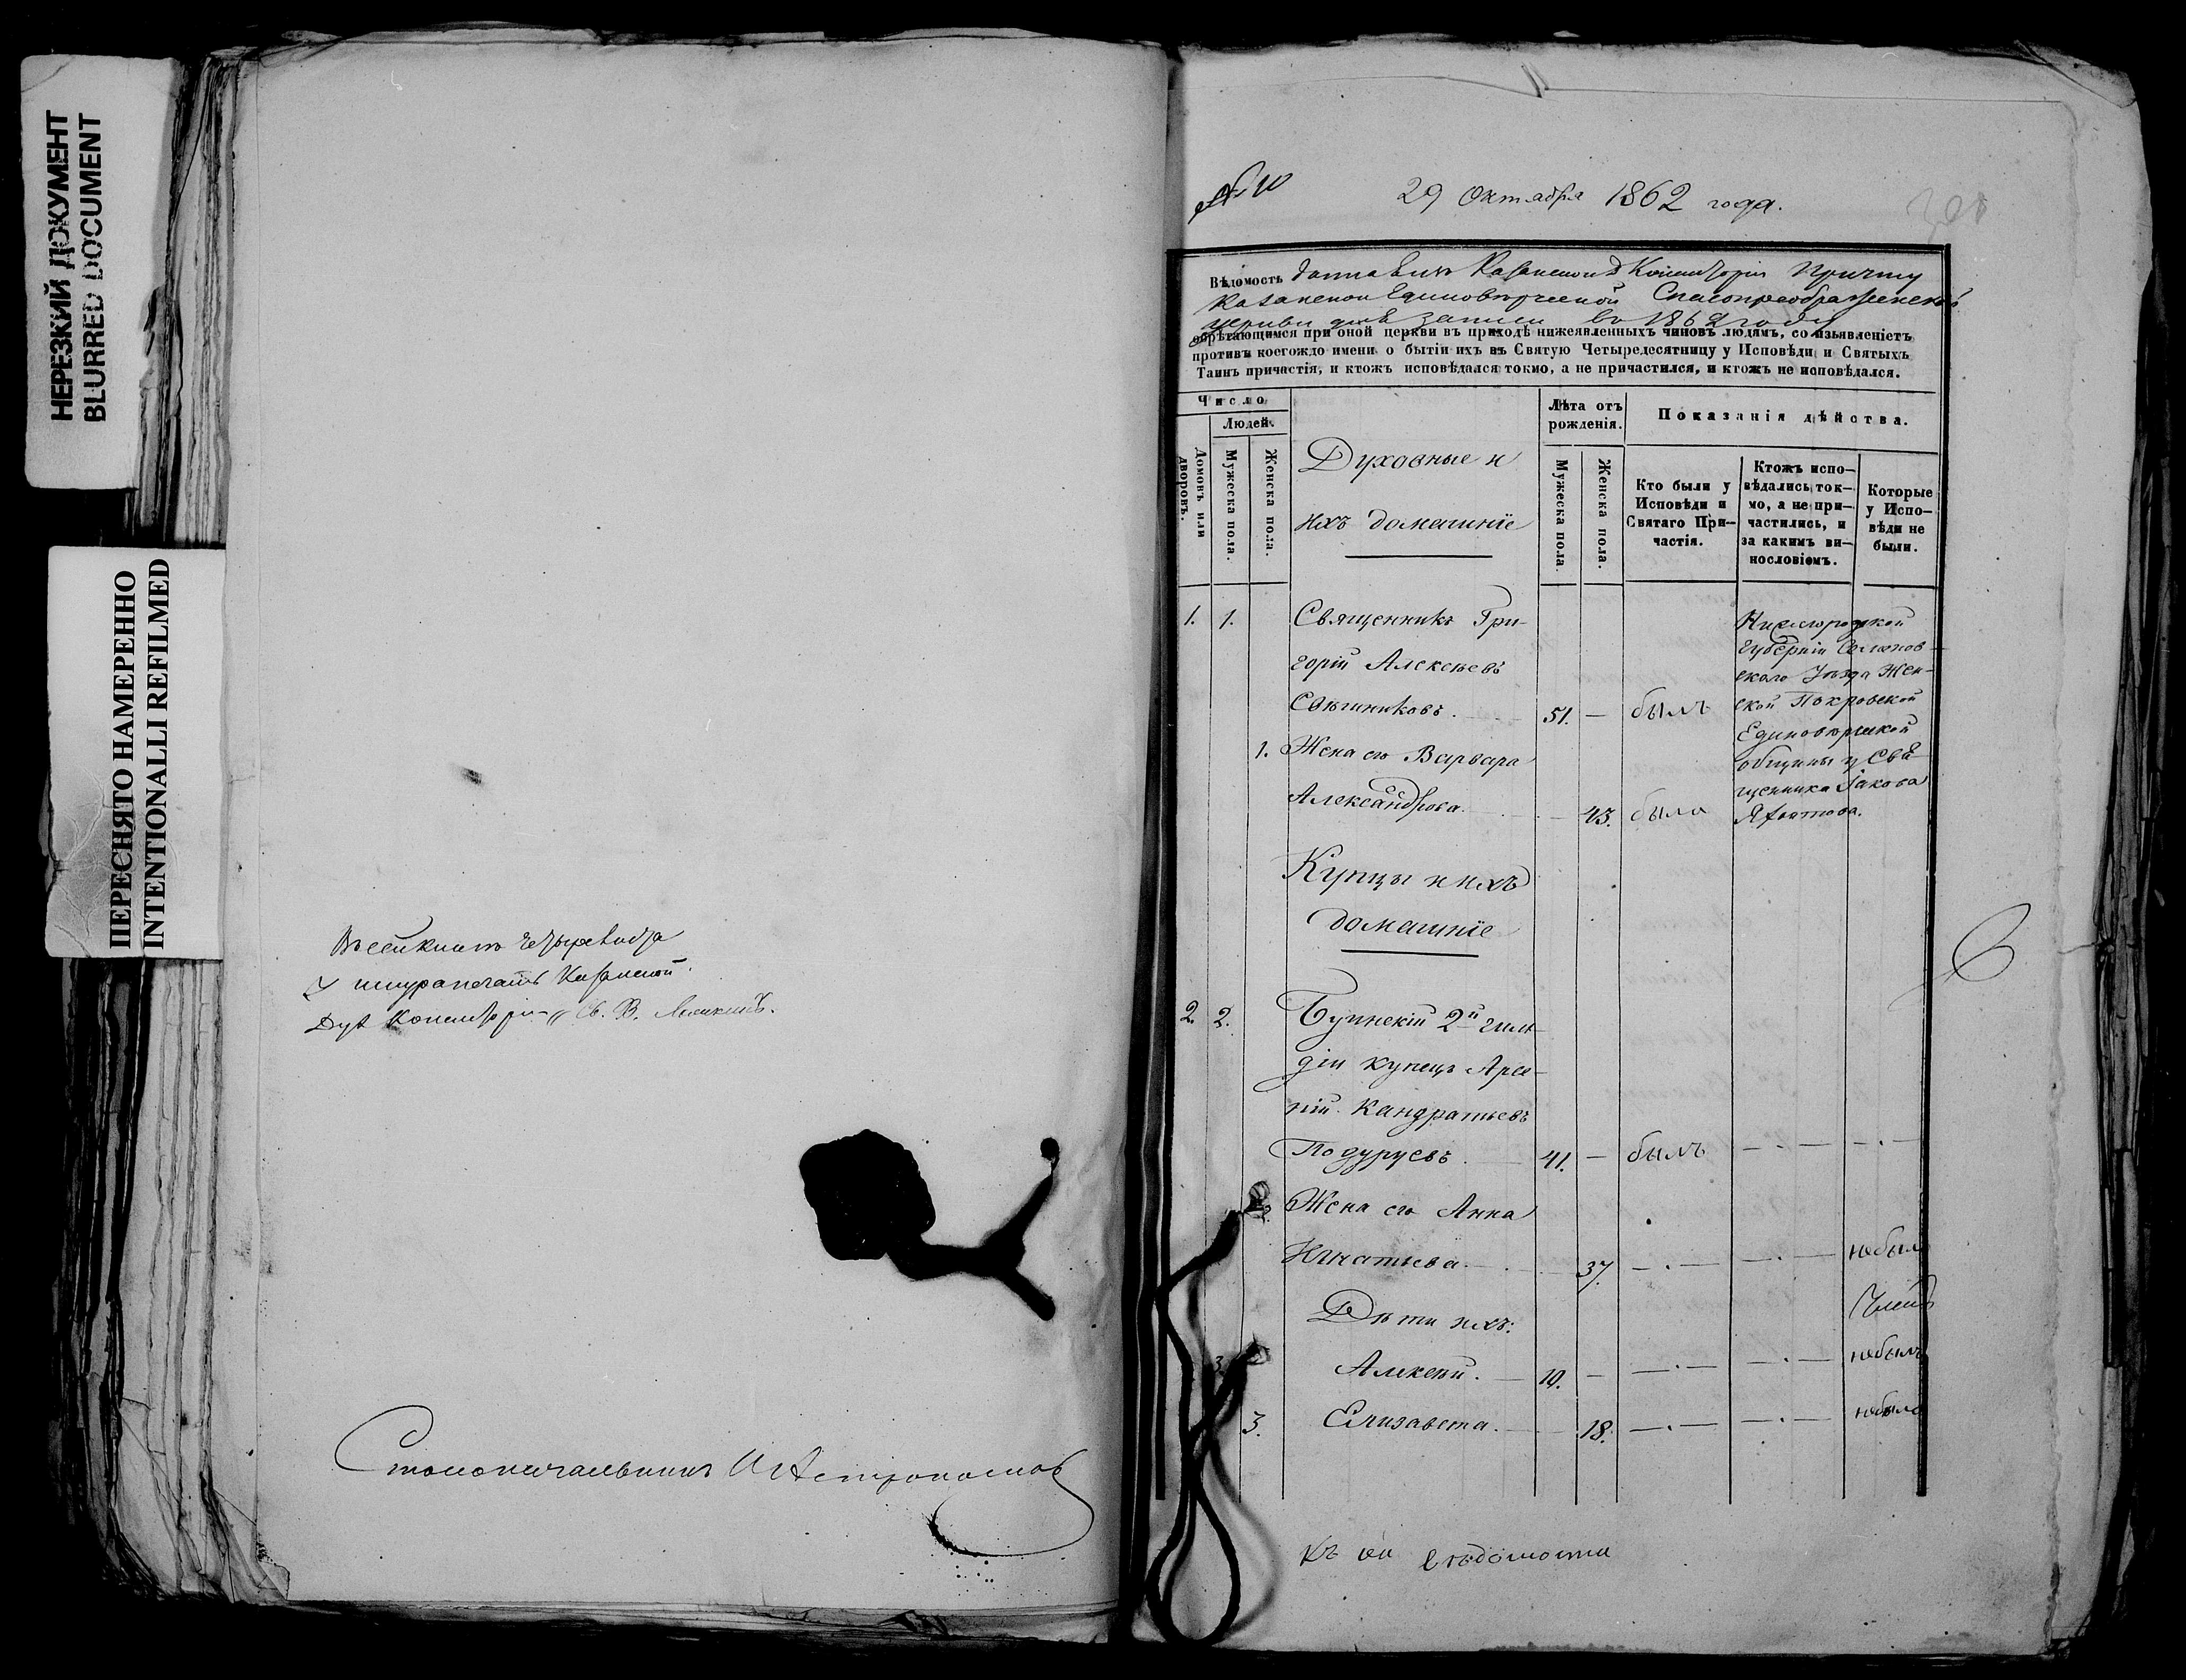 НЕРЕЗКИЙ ДОКУМЕНТ
BLURRED DOCUMENT
ПЕРЕСНЯТО НАМЕРЕННО
INTENTIONALLI REFILMED
Въ сей книгѣ четыре листа
и шнуропечать Казанской
Дух Консисторіи
Столоначальникъ
№ 10
29 Октября 1862 года.
Вѣдомость данная изъ Казанской Консисторіи Причту
Казанской Единовѣрческой Спасопреображенской
церкви для записи въ 1862 году
обрѣтающимся при оной церкви въ приходѣ нижеявленныхъ чиновъ людямъ, со изъявленіетъ
противъ коегождо имени о бытіи ихъ въ Святую Четыредесятницу у Исповѣди и Святыхъ
Таинъ причастія, и ктожъ исповѣдался токмо, а не причастился, и ктожъ не исповѣдался.
Число
Людей.
Домовъ или дворовъ.
Мужеска пола.
Женска пола.
Духовные и
ихъ домашніе
Лѣта отъ рожденія.
Мужеска пола.
Женска пола.
Показанія дѣйства.
Кто были у Исповѣди и Святаго При-частія.
Ктожъ испо-вѣдались ток-мо, а не при-частились, и за какимъ ви-нословіемъ.
Которые у Испо-вѣди не были.
1. 1. Священникъ Гри-
горій Алексѣевъ
Свѣчниковъ. 51. — былъ
1. Жена его Варвара
Александрова. 43. была
Нижегородской
Губерніи Семенов-
скаго Уѣзда Жен-
ской Покровской
Единовѣрческой
общины у Свя-
щенника Іакова
Купцы и ихъ
домашніе
2. 2. Буинскій 2й гиль-
діи купецъ Арсе-
ній Кандратьевъ
Подуруевъ. 41. — былъ — . — — . —
2. Жена его Анна
Игнатьева. 37. — . — — . — небыла
Дѣти ихъ:
3. Алексѣй. 10. — — . — — . — небылъ
3. Елизавета. 18. — . — — . — небыла
къ сей вѣдомости